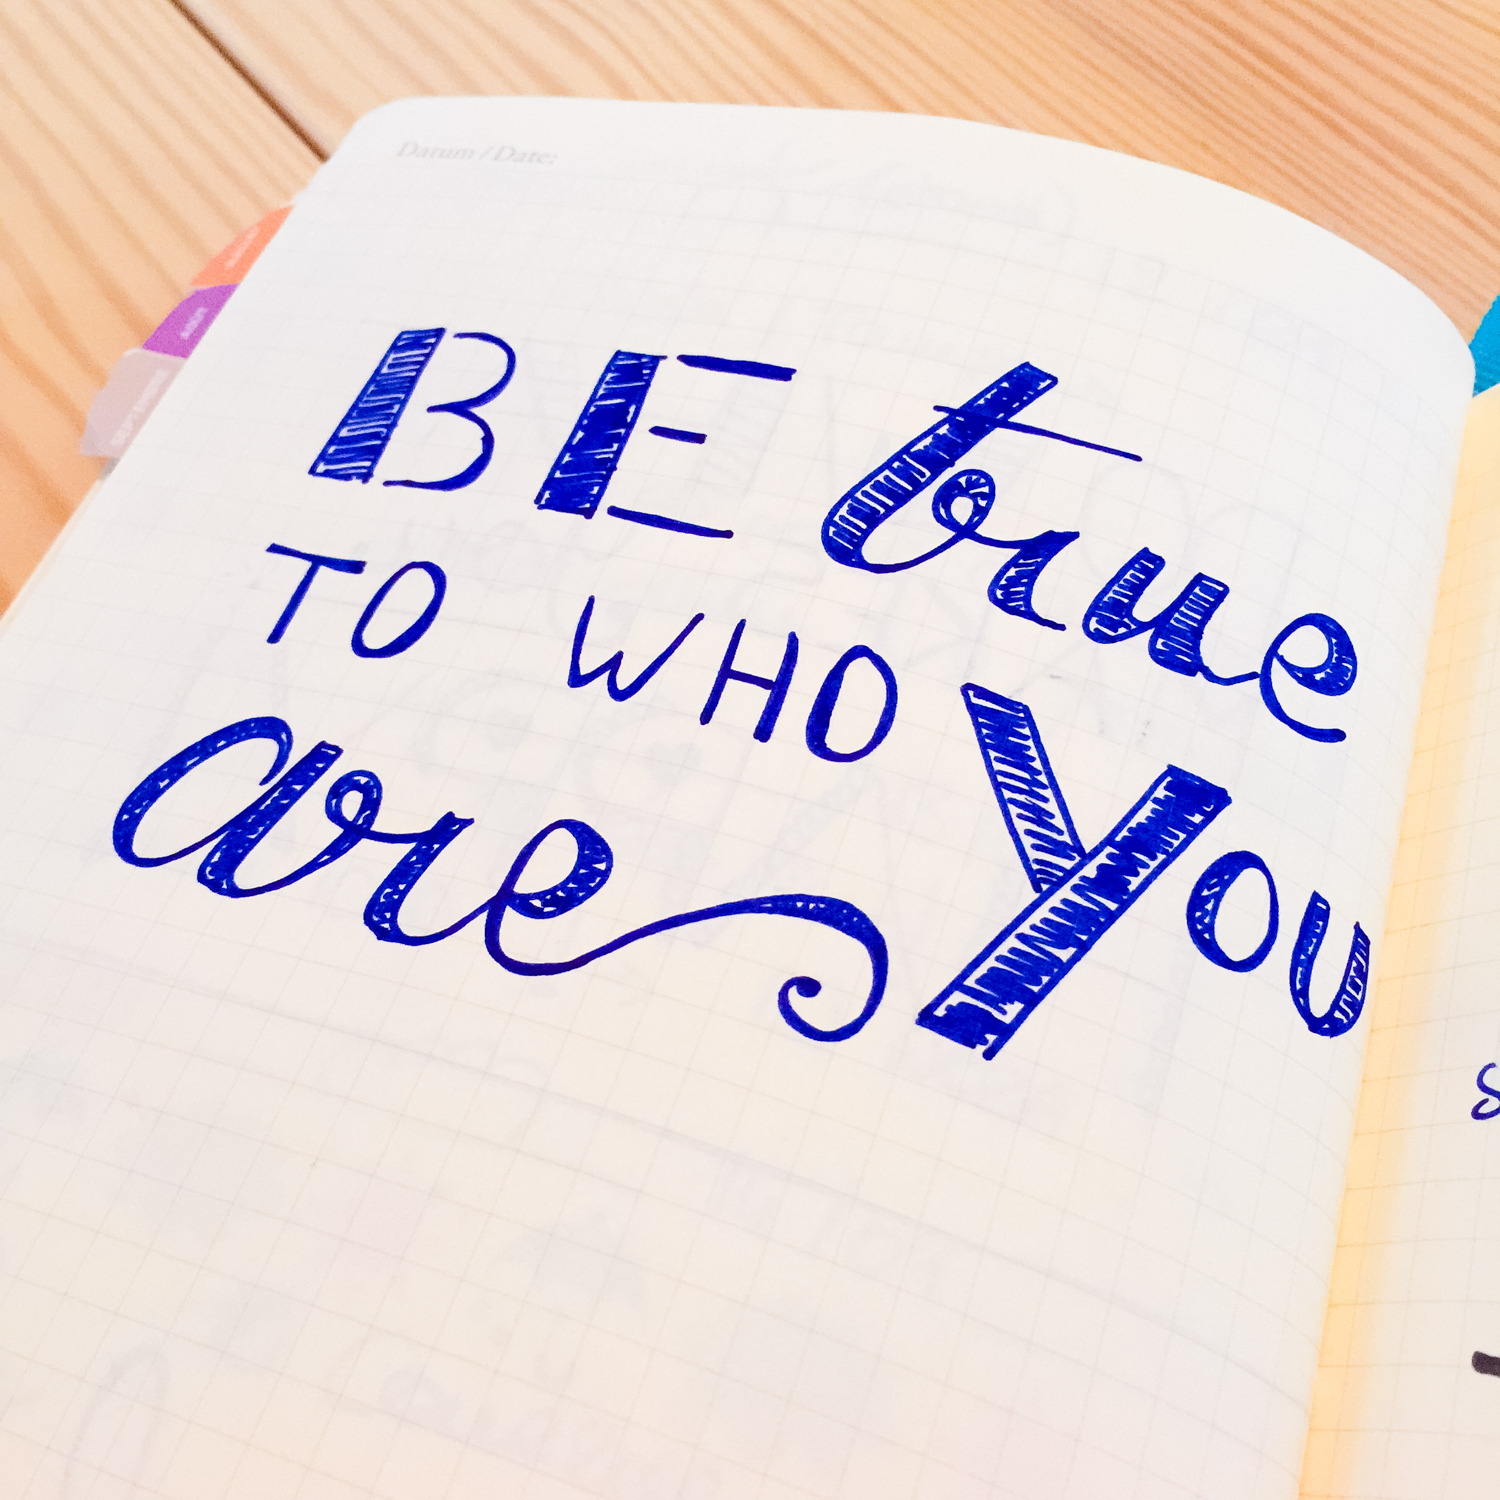 Datum / Date:
BE true
TO WHO You
are